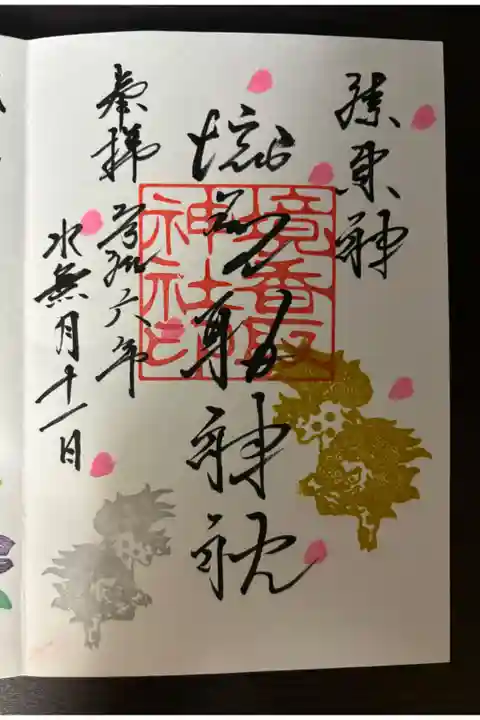 神
境香取神社
奉拝 令和六年
水無月十一日
境香取
神社印